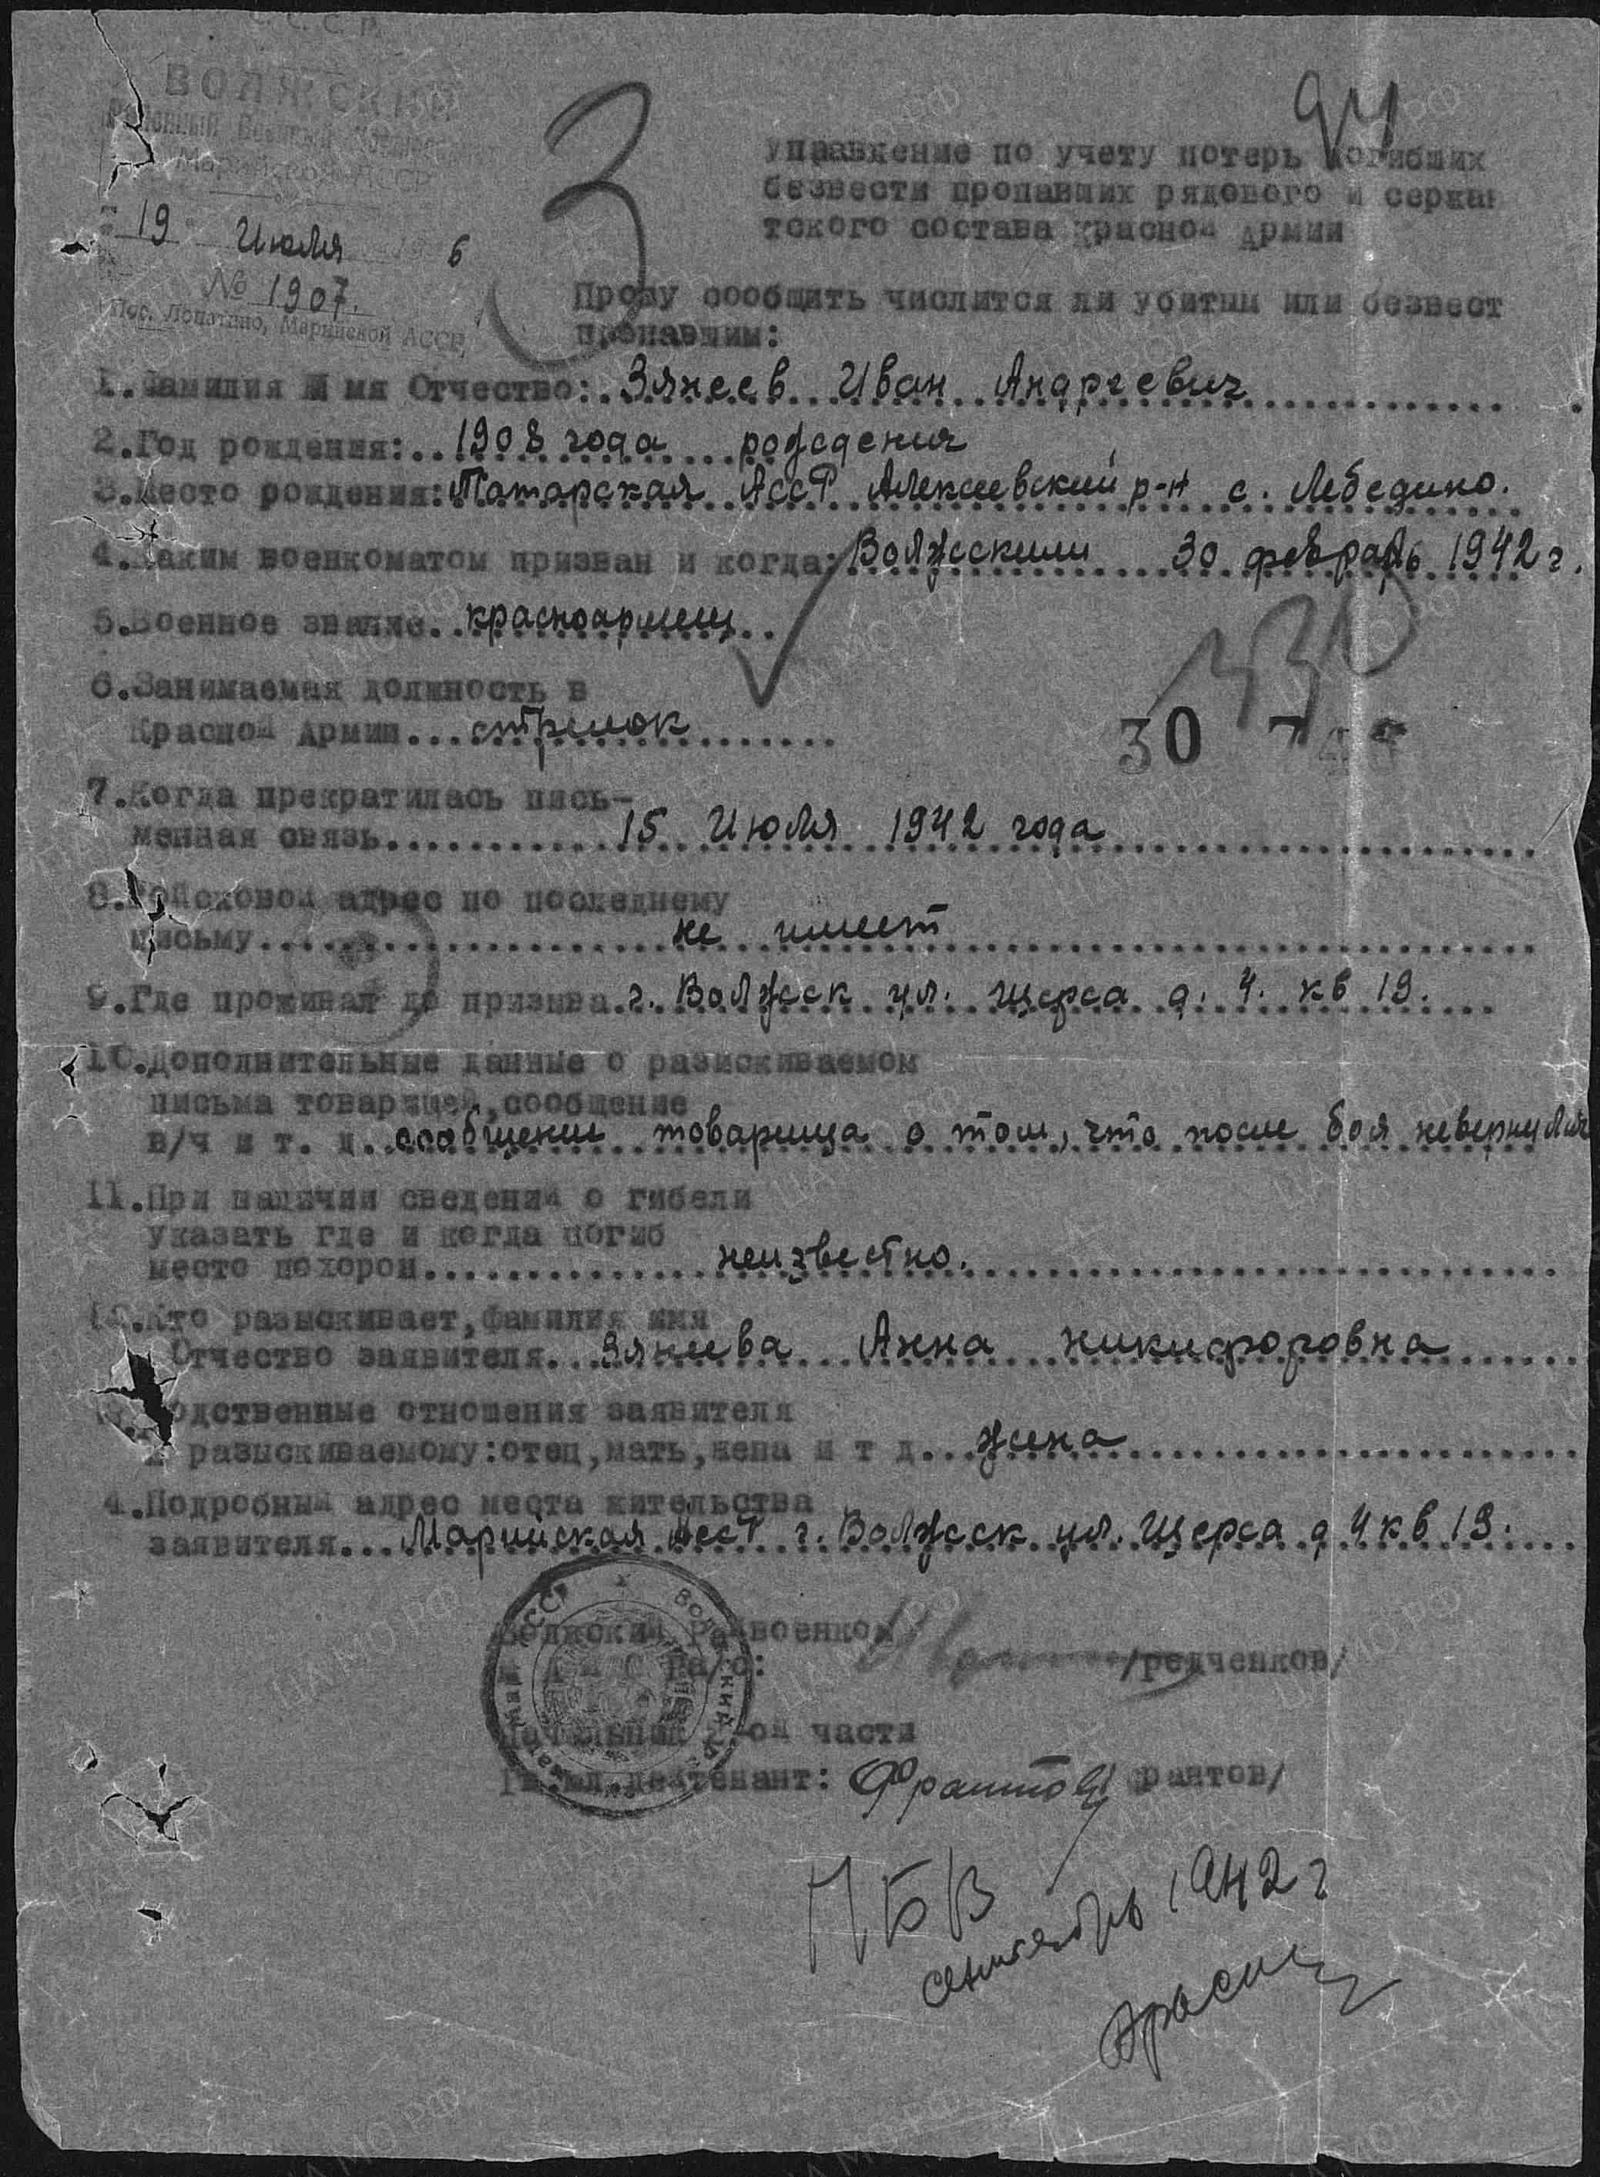 С.С.С.Р.
ВОЛЖСКИЙ
Районный Военный Комиссариат
Марийской АССР
"19" Июля 1946
№ 1907.
Пос. Лопатино, Марийской АССР.
3
94
Управление по учету потерь погибших
безвести пропавших рядового и сержан
тского состава Красной Армии
Прошу сообщить числится ли убитым или безвест
пропавшим:
1.Фамилия Имя Отчество: Зянеев Иван Андреевич
2.Год рождения: 1908 года рождения
3.Место рождения: Татарская АССР Алексеевский р-н с. Лебедино.
4.Каким военкоматом призван и когда: Волжским 30 февраль 1942 г.
5.Военное звание красноармеец
6.Занимаемая должность в
Красной Армии стрелок
30
7.Когда прекратилась пись-
менная связь 15 Июля 1942 года
8.Войсковой адрес по последнему
письму не имеет
9.Где проживал до призыва г. Волжск ул. Щерса д. 4. кв 19.
10.Дополнительные данные о разискиваемом
письма товарищей,сообщение
в/ч и т. д. сообщение товарища о том, что после боя невернулся
11.При наличии сведений о гибели
указать где и когда погиб
место похорон неизвестно.
12.Кто разыскивает,фамилия имя
Отчество заявителя Зянеева Анна Никифоровна
Родственные отношения заявителя
к разыскиваемому:отец,мать,жена и т д жена
4.Подробный адрес места жительства
заявителя Марийская АССР г. Волжск ул. Щерса д 4 кв 19.
Волжский Райвоенком
/редченков/
Начальник 2-ой части
Гв.мл.лейтенант: Франтов /Франтов/
ПБВ
сентябрь 1942 г